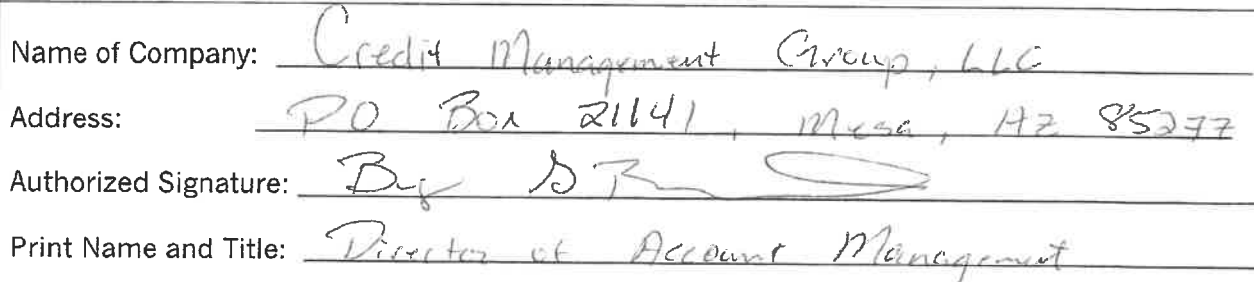 Name of Company: Credit Management Group, LLC
Address: PO Box 21141, Mesa, AZ 85277
Authorized Signature:
Print Name and Title: Director of Account Management